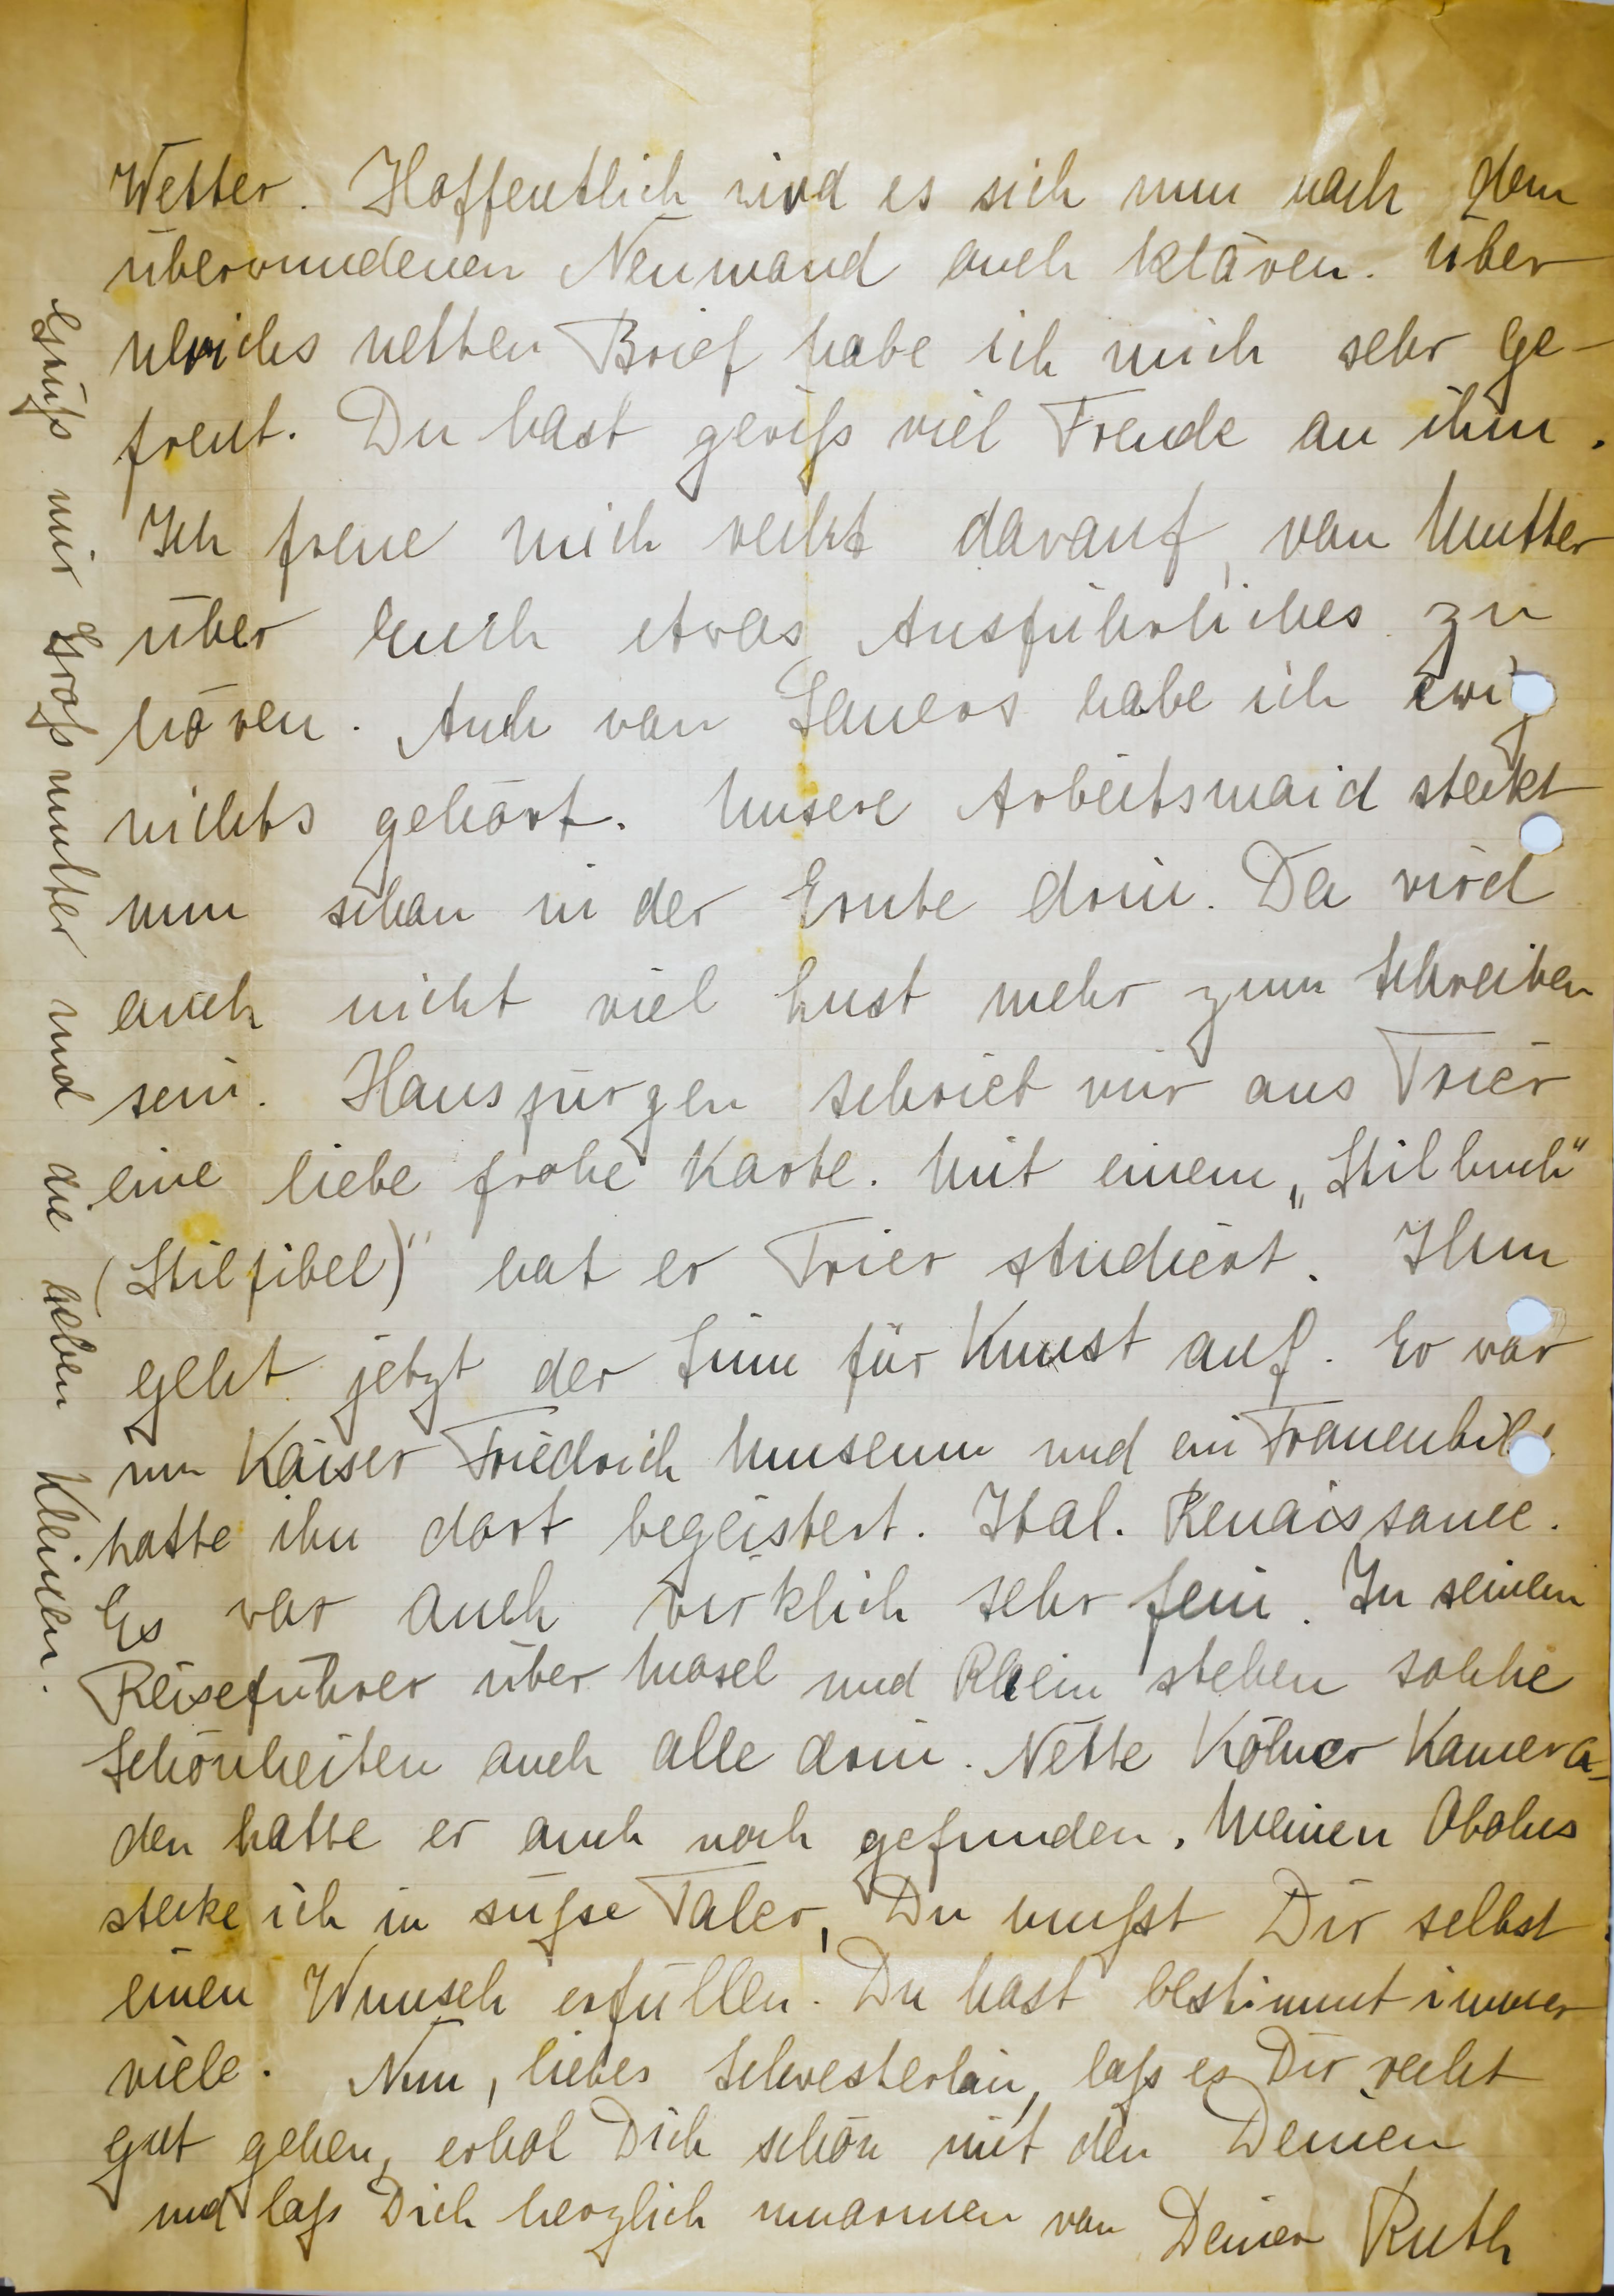 Wetter. Hoffentlich wird es sich nun nach dem
überwundenen Neumond auch klären. Über
Ulrichs netten Brief habe ich mich sehr ge-
freut. Du hast gewiß viel Freude an ihm.
Ich freue mich recht darauf, von Mutter
über Euch etwas Ausführliches zu
hören. Auch von habe ich ewig
nichts gehört. Unsere Arbeitsmaid steckt
nun schon in der Ernte drin. Da wird
auch nicht viel Lust mehr zum Schreiben
sein. Hansjürgen schrieb mir aus Trier
eine liebe frohe Karte. Mit einem „Stilbuch“
(Stilfibel)“ hat er Trier studiert. Ihm
geht jetzt der Sinn für Kunst auf. Er war
im Kaiser Friedrich Museum und ein Frauenbild
hatte ihn dort begeistert. Ital. Renaissance.
Es war auch wirklich sehr fein. In seinem
Reiseführer über Mosel und Rhein stehen solche
Schönheiten auch alle drin. Nette Kölner Kamera-
den hatte er auch noch gefunden. Meinen Obolus
stecke ich in süße Taler, Du mußt Dir selbst
einen Wunsch erfüllen. Du hast bestimmt immer
viele. Nun, liebes Schwesterlein, laß es Dir recht
gut gehen, erhol Dich schön mit den Deinen
und laß Dich herzlich umarmen von Deiner Ruth
Grüß mir Großmutter und die lieben Kleinen.